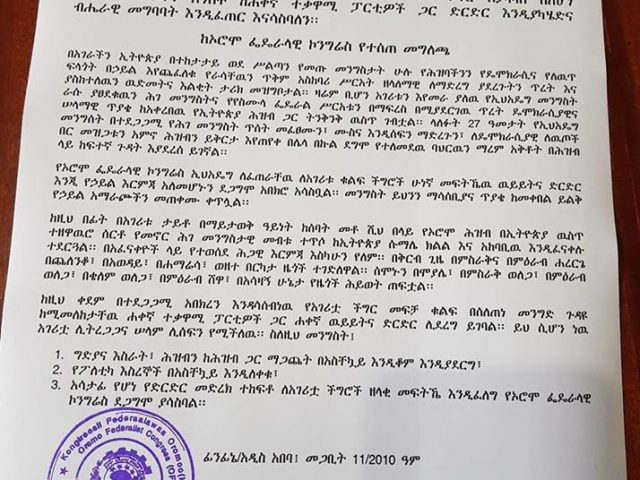 ብሔራዊ መግባባት እንዲፈጠር እናሳስባለን።
ከኦሮሞ ፌዴራላዊ ኮንግረስ የተሰጠ መግለጫ
በአገራችን ኢትዮጵያ በተከታታይ ወደ ሥልጣን የመጡ መንግስታት ሁሉ የሕዝቦችንን የዲሞክራሲና የለውጥ
ፍላጎት በኃይል እየጨፈለቁ የራሳቸውን ጥቅም አስከባሪ ሥርአት ዘላለማዊ ለማድረግ ያደረጉትን ጥረት እና
ያስከተለውን ዉድመትና እልቂት ታሪክ መዝግቦታል። ዛሬም ቢሆን አገሪቱን እየመራ ያለዉ የኢህአዴግ መንግስት
ራሱ ያፀደቀዉን ሕገ መንግስትና የየስሙላ ፌዴራል ሥርአቱን በማፍረስ በሚያደርገዉ ጥረት ዴሞክራሲያዊና
ሠላማዊ ጥያቄ ከአቀረበዉ የኢትዮጵያ ሕዝብ ጋር ትንቅንቅ ዉስጥ ገብቷል። ላለፉት 27 ዓመታት የኢህአዴግ
መንግስት በተደጋጋሚ የሕገ መንግስት ጥሰት መፈፀሙን፣ ሙስና እንዲሰፍን ማድረጉን፣ ለዴሞክራሲያዊ ለዉጦች
በር መዝጋቱን አምኖ ሕዝብን ይቅርታ እየጠየቀ በሌላ በኩል ደግሞ የተለመደዉ ባህርዉን ማረም አቅቶት በሕዝብ
ላይ ከፍተኛ ጉዳት እያደረሰ ይገኛል።
የኦሮሞ ፌዴራላዊ ኮንግረስ ኢህአዴግ ለፈጠራቸዉ ለአገሪቱ ቁልፍ ችግሮች ሁነኛ መፍትሔዉ ዉይይትና ድርድር
እንጂ የኃይል እርምጃ አለመሆኑን ደጋግሞ አበክሮ አሳስቧል። መንግስት ይህንን ማሳሰቢያና ጥያቄ ከመቀበል ይልቅ
የኃይል አማራጮችን መጠቀሙ ቀጥሏል።
ከዚህ በፊት በአገሪቱ ታይቶ በማይታወቅ ዓይነት ከሰባት መቶ ሺህ በላይ የኦሮሞ ሕዝብ በኢትዮጵያ ዉስጥ
ተዘዋዉሮ ሰርቶ የመኖር ሕገ መንግስታዊ መብቱ ተጥሶ ከኢትዮጵያ ሱማሌ ክልል እና አካባቢዉ እንዲፈናቀሉ
ተደርጓል። በአፈናቃዮች ላይ የተወሰደ ሕጋዊ እርምጃ እስካሁን የለም። በቅርብ ጊዜ በምስራቅና በምዕራብ ሐረርጌ
በጨለንቆ፣ በአወዳይ፣ በሐማሬሳ፣ ወዘተ በርካታ ዜጎች ተገድለዋል። ሰሞኑን በሞያሌ፣ በምስራቅ ወለጋ፣ በምዕራብ
ወለጋ፣ በቄለም ወለጋ፣ በምዕራብ ሸዋ፣ በአሳዛኝ ሁኔታ የዜጎች ሕይወት ጠፍቷል።
ከዚህ ቀደም በተደጋጋሚ አበክረን እንዳሳሰብነዉ የአገሪቷ ችግር መፍቻ ቁልፍ በሰለጠነ መንግድ ጉዳዩ
ከሚመለከታቸዉ ሐቀኛ ተቃዋሚ ፓርቲዎች ጋር ሐቀኛ ዉይይትና ድርድር ሊደረግ ይገባል። ይህ ሲሆን ነዉ
አገሪቷ ሊትረጋጋና ሠላም ሊሰፍን የሚችለዉ። ስለዚህ መንግስት፣
1. ግድያና እስራት፣ ሕዝብን ከሕዝብ ጋር ማጋጨት በአስቸኳይ እንዲቆም እንዲያደርግ፣
2. የፖለቲካ እስረኞች በአስቸኳይ እንዲለቀቁ፣
3. አሳታፊ የሆነ የድርድር መድረክ ተከፍቶ ለአገሪቷ ችግሮች ዘላቂ መፍትኼ እንዲፈልግ የኦሮሞ ፌዴራላዊ
ኮንግረስ ደጋግሞ ያሳስባል።
Kongireesii Federaalawaa Oromoo
Oromo Federalist Congress (OFC)
ፊንፊኔ/አዲስ አበባ፣ መጋቢት 11/2010 ዓም